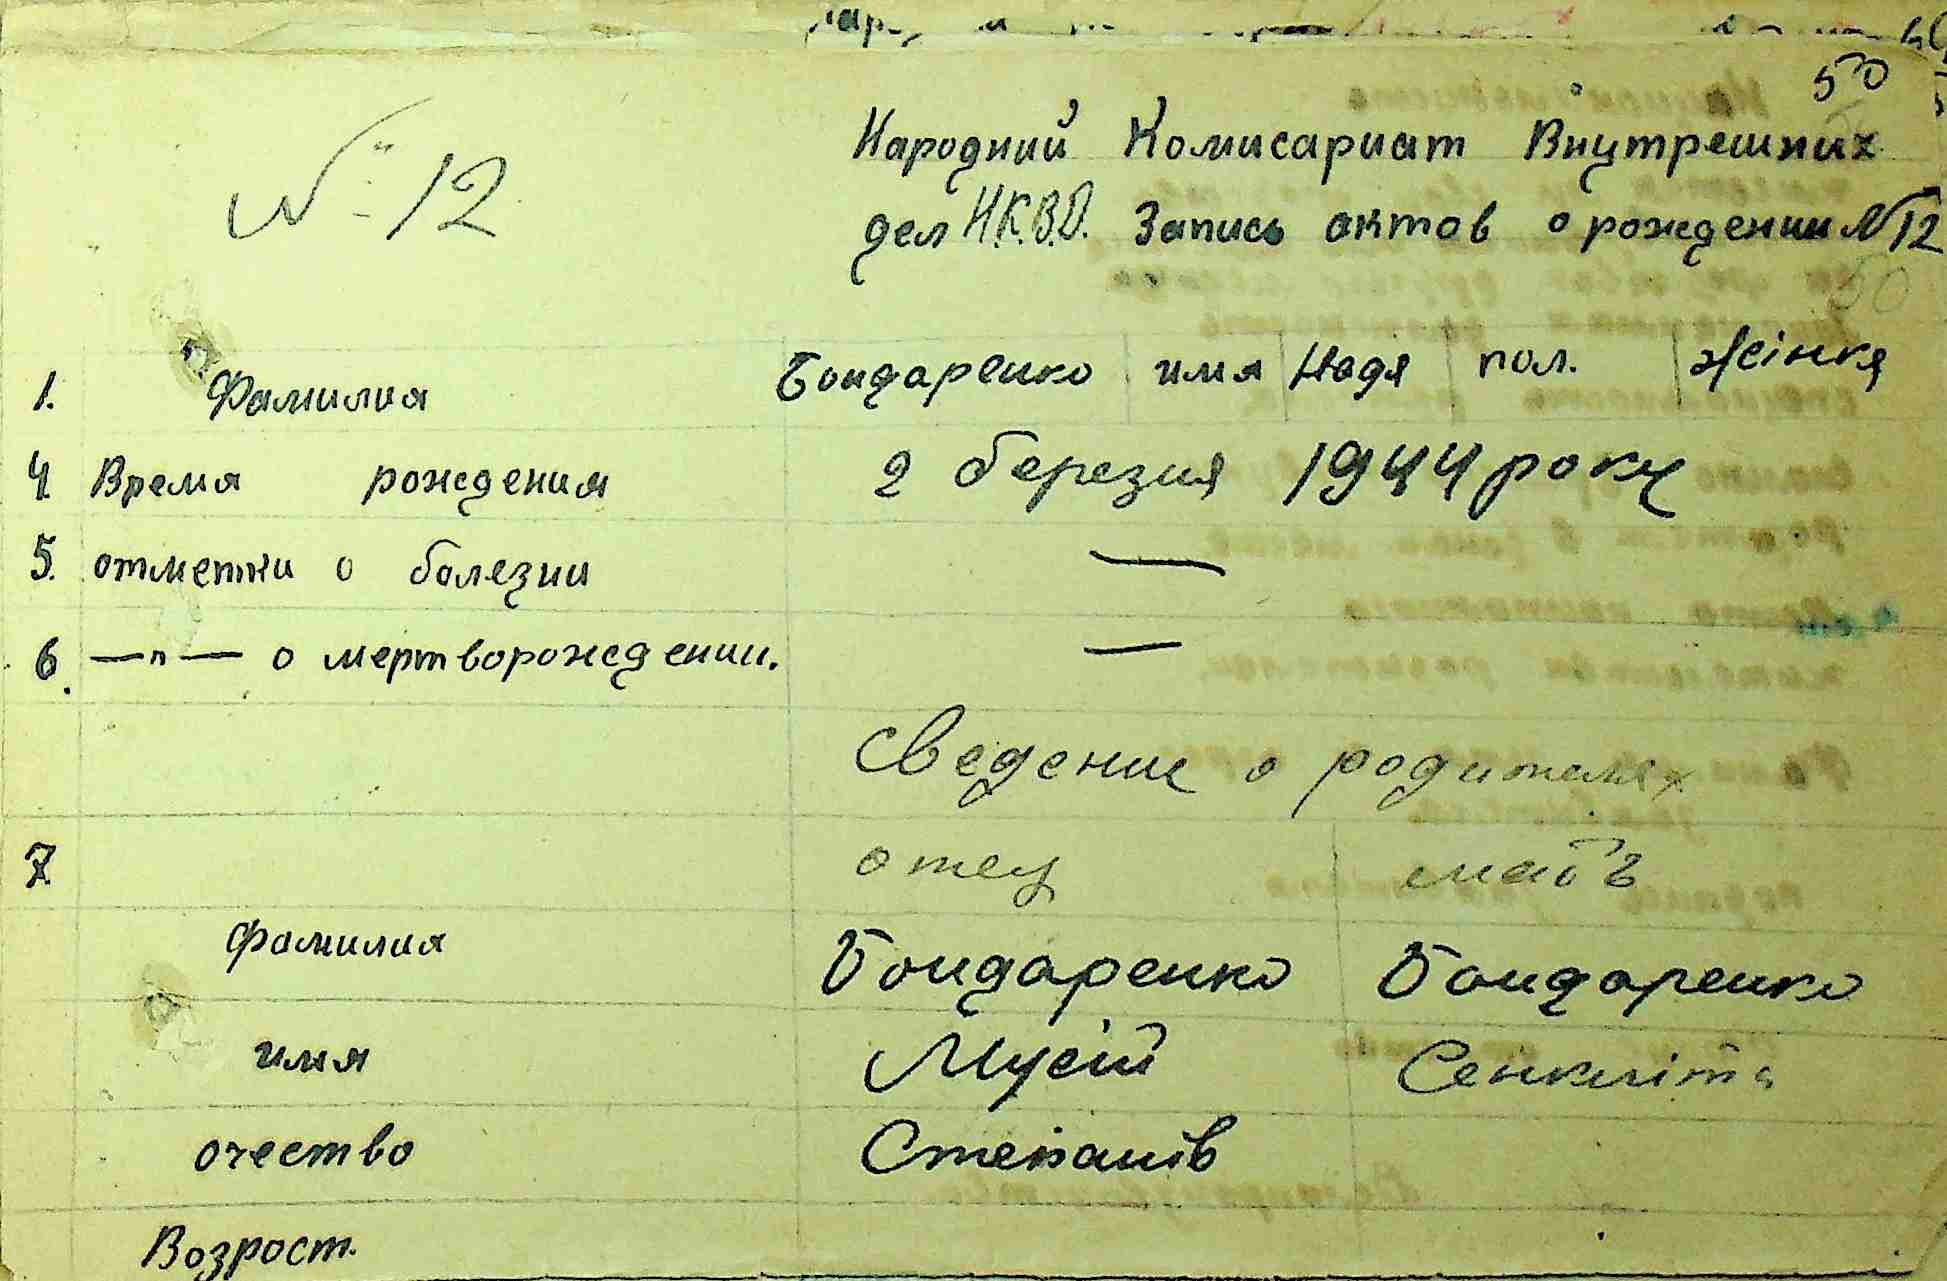 50
№ 12
Народний Комисариат Внутрешних
дел Н.К.В.Д. Запись актов о рождении № 12
50
1. Фамилия Бондаренко имя Надя пол. жінкя
4. Время рождения 2 березня 1944 року
5. отметки о болезни —
6. —"— о мертворождении. —
Сведение о родителях
7. отец мать
фамилия Бондаренко Бондаренко
имя Мусій Сенклита
очество Степанів
Возрост.